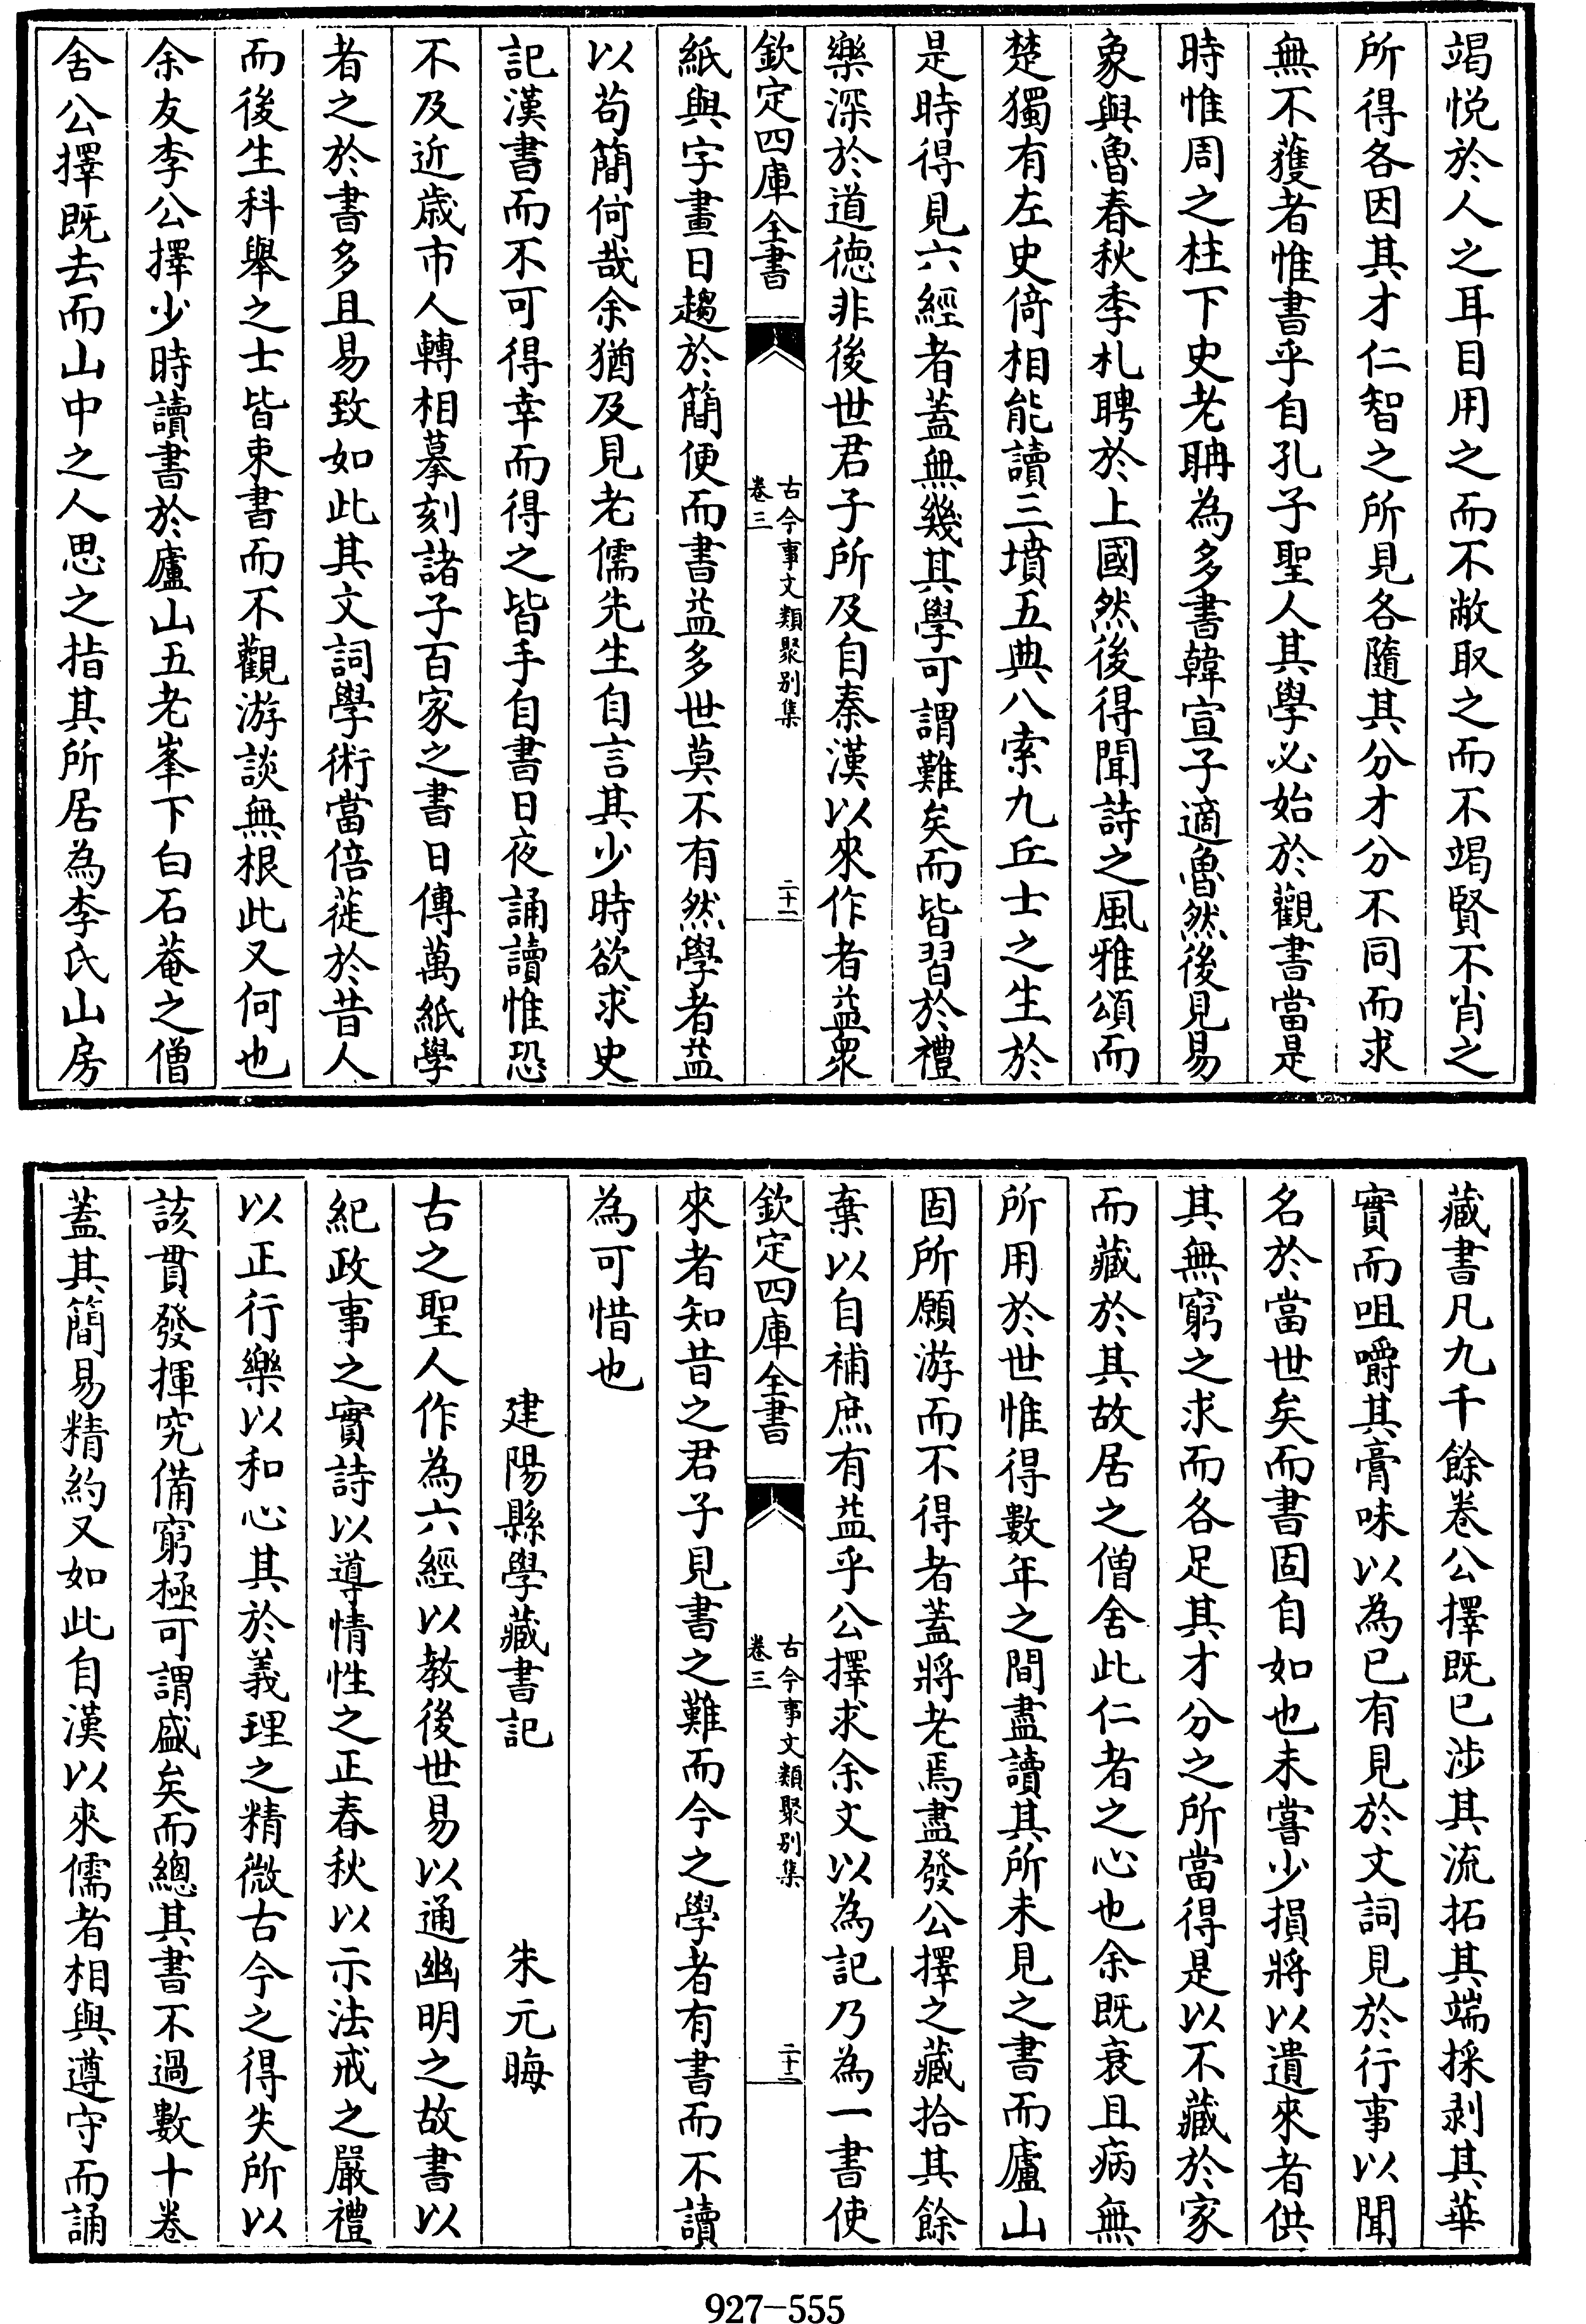 竭悦於人之耳目用之而不敝取之而不竭賢不肖之
所得各因其才仁智之所見各隨其分才分不同而求
無不獲者惟書乎自孔子聖人其學必始於觀書當是
時惟周之柱下史老聃為多書韓宣子適魯然後見易
象與魯春秋季札聘於上國然後得聞詩之風雅頌而
楚獨有左史倚相能讀三墳五典八索九丘士之生於
是時得見六經者蓋無幾其學可謂難矣而皆習於禮
樂深於道德非後世君子所及自秦漢以來作者益衆
欽定四庫全書
古今事文類聚别集
卷三
二十一
紙與字畫日趨於簡便而書益多世莫不有然學者益
以苟簡何哉余猶及見老儒先生自言其少時欲求史
記漢書而不可得幸而得之皆手自書日夜誦讀惟恐
不及近歲市人轉相摹刻諸子百家之書日傳萬紙學
者之於書多且易致如此其文詞學術當倍蓰於昔人
而後生科舉之士皆束書而不觀游談無根此又何也
余友李公擇少時讀書於廬山五老峯下白石菴之僧
舍公擇既去而山中之人思之指其所居為李氏山房
藏書凡九千餘卷公擇既已涉其流拓其端採剥其華
實而咀嚼其膏味以為已有見於文詞見於行事以聞
名於當世矣而書固自如也未嘗少損將以遺來者供
其無窮之求而各足其才分之所當得是以不藏於家
而藏於其故居之僧舍此仁者之心也余既衰且病無
所用於世惟得數年之間盡讀其所未見之書而廬山
固所願游而不得者蓋將老焉盡發公擇之藏拾其餘
棄以自補庶有益乎公擇求余文以為記乃為一書使
欽定四庫全書
古今事文類聚别集
卷三
二十二
來者知昔之君子見書之難而今之學者有書而不讀
為可惜也
建陽縣學藏書記　朱元晦
古之聖人作為六經以教後世易以通幽明之故書以
紀政事之實詩以導情性之正春秋以示法戒之嚴禮
以正行樂以和心其於義理之精微古今之得失所以
該貫發揮究備窮極可謂盛矣而總其書不過數十卷
蓋其簡易精約又如此自漢以來儒者相與遵守而誦
927-555